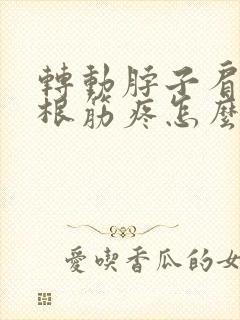 轉動脖子肩
根筋疼怎麼
愛喫香瓜的女